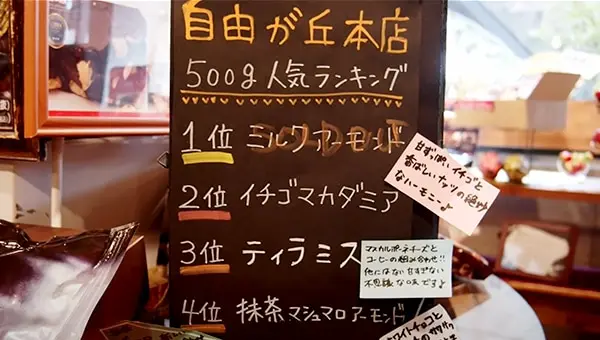 自由が丘本店
500g人気ランキング
1位 ミルクアーモンド
2位 イチゴマカダミア
3位 ティラミス
4位 抹茶マシュマロアーモンド
甘ずっぱいイチゴと
香ばしいナッツの絶妙
なハーモニー♪
マスカルポーネチーズと
コーヒーの組み合わせ!!
他にはない甘すぎない
不思議な味です♪
ホワイトチョコと